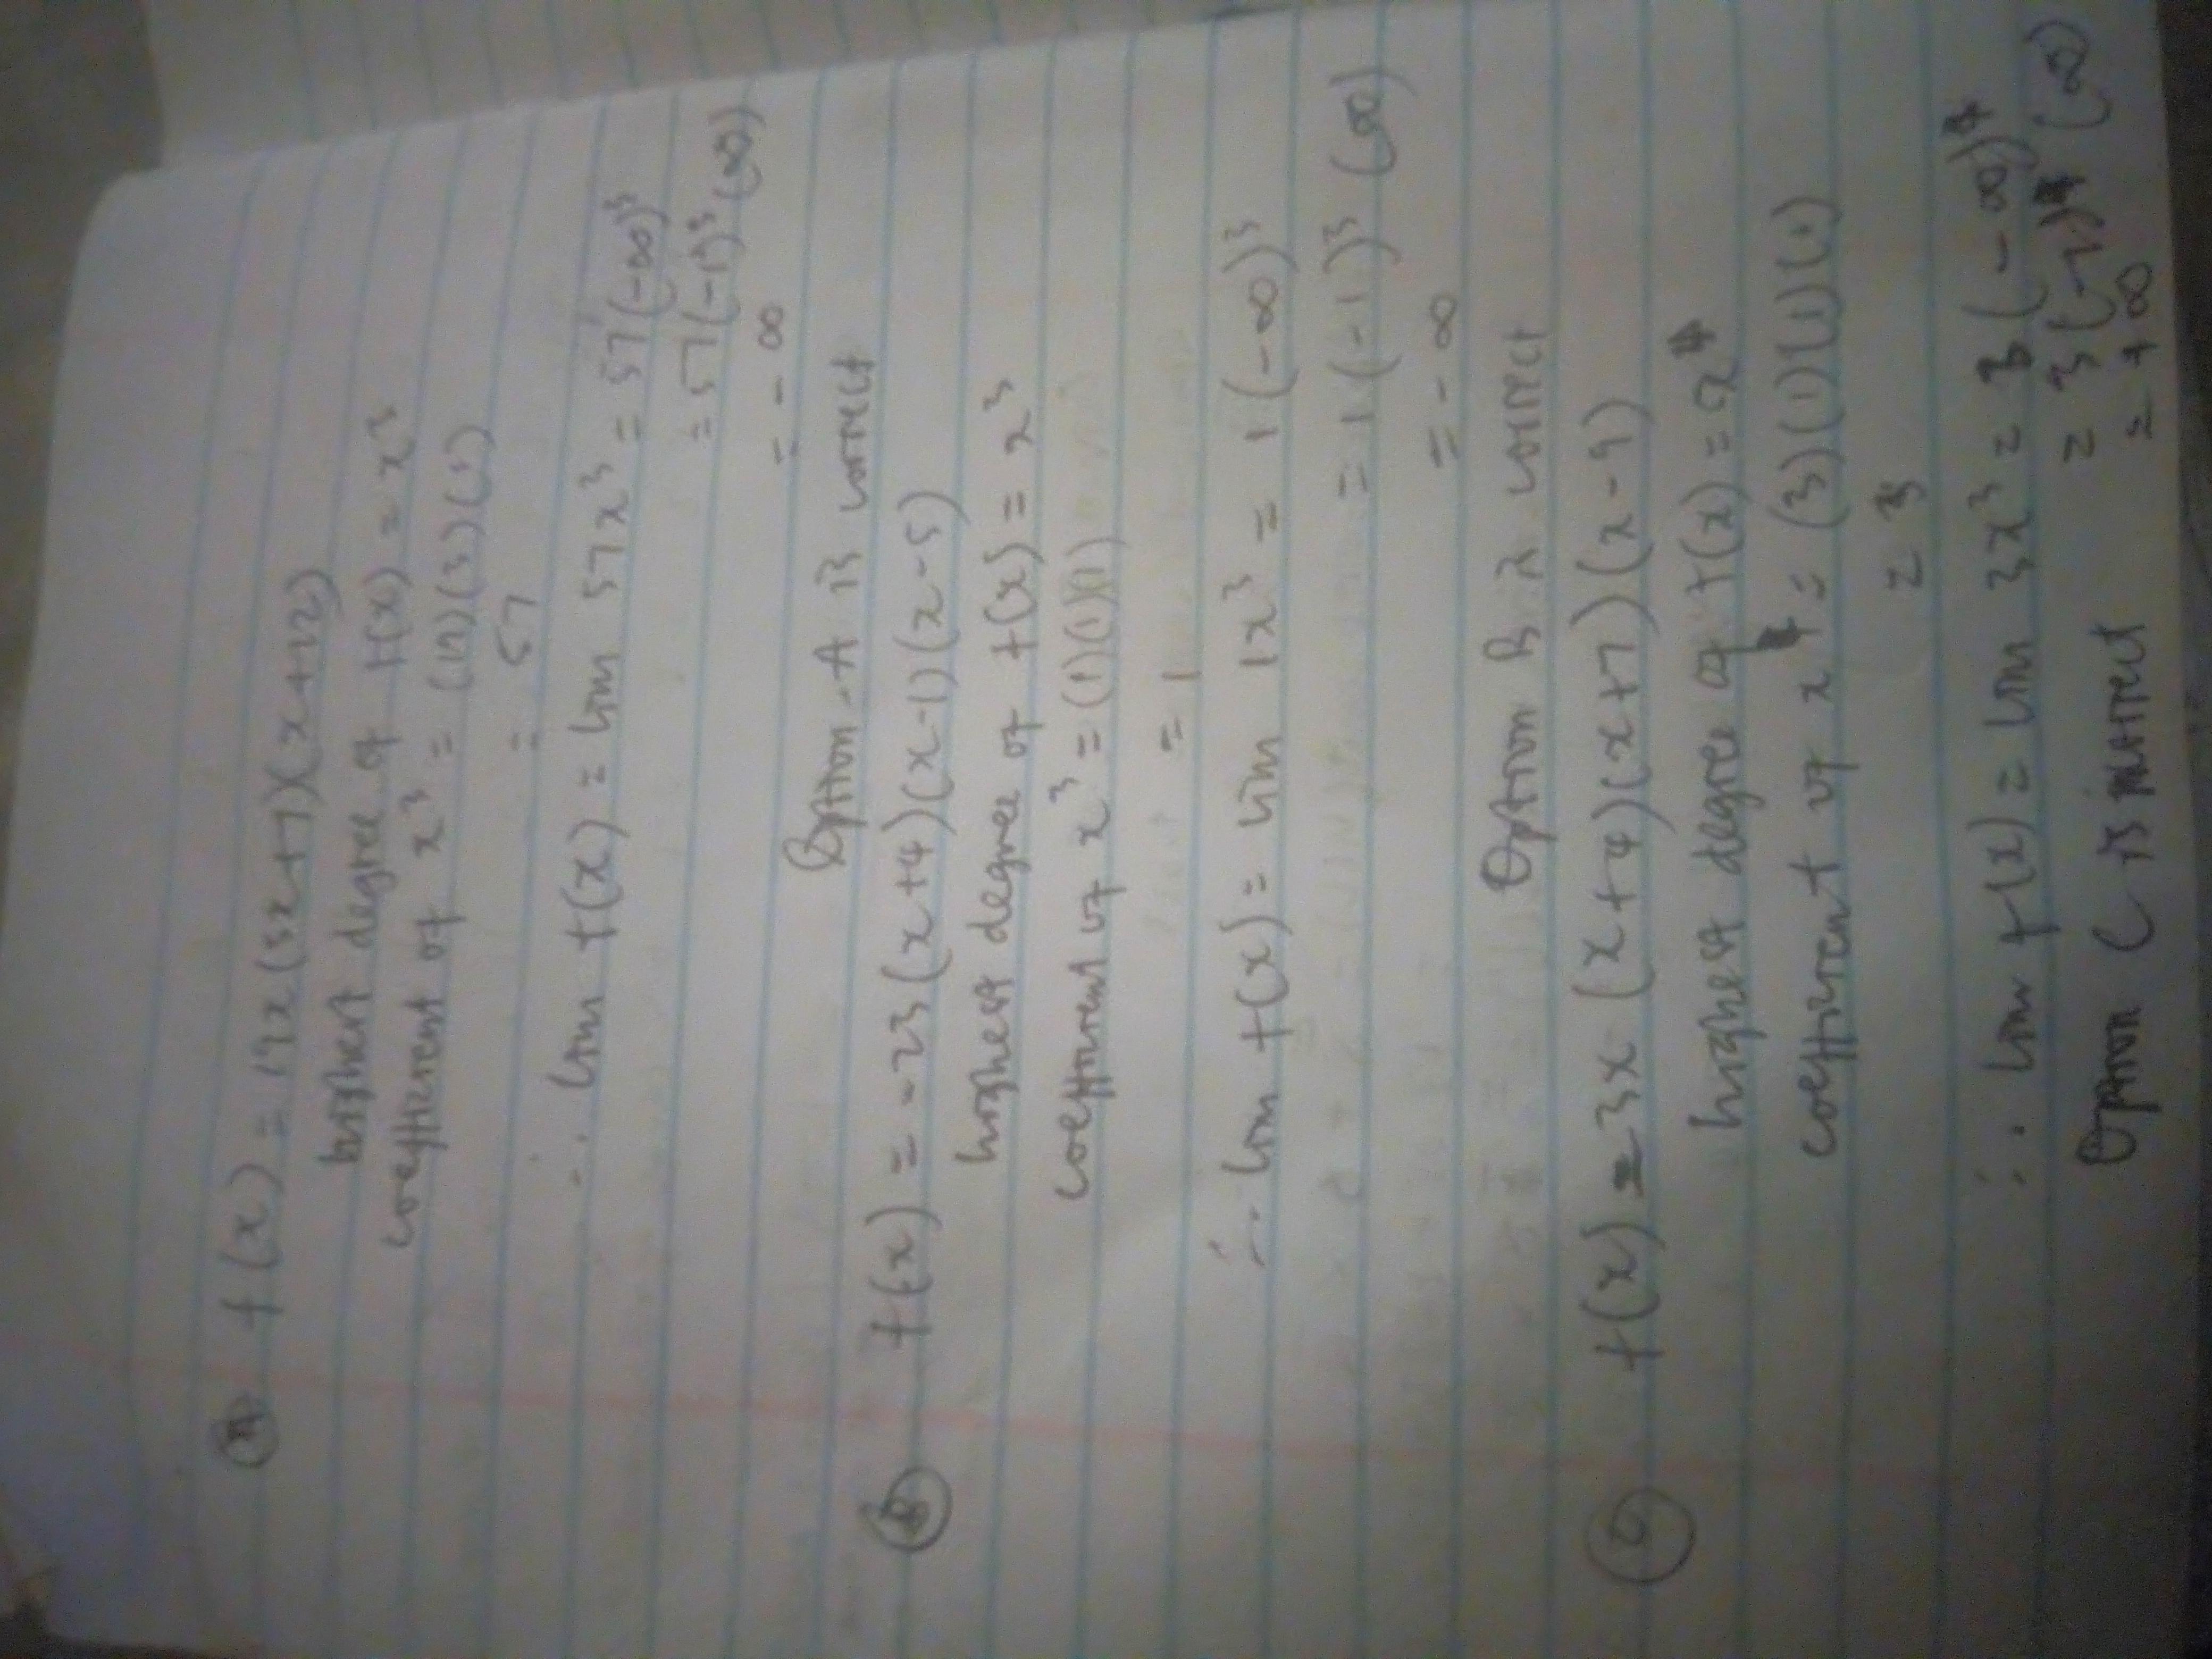 (A) f(x) = 19x(3x+7)(x+12)
highest degree of f(x) = x³
coefficient of x³ = (19)(3)(1)
= 57
∴ lim f(x) = lim 57x³ = 57(-∞)³
= 57(-1)³(∞)
= -∞
Option A is correct
(B) f(x) = -23(x+4)(x-1)(x-5)
highest degree of f(x) = x³
coefficient of x³ = (1)(1)(1)
= 1
∴ lim f(x) = lim 1x³ = 1(-∞)³
= 1(-1)³(∞)
= -∞
Option B is correct
(C) f(x) = 3x(x+4)(x+7)(x-9)
highest degree of f(x) = x⁴
coefficient of x⁴ = (3)(1)(1)(1)
= 3
∴ lim f(x) = lim 3x³ = 3(-∞)⁴
= 3(-1)⁴(∞)
= +∞
Option C is